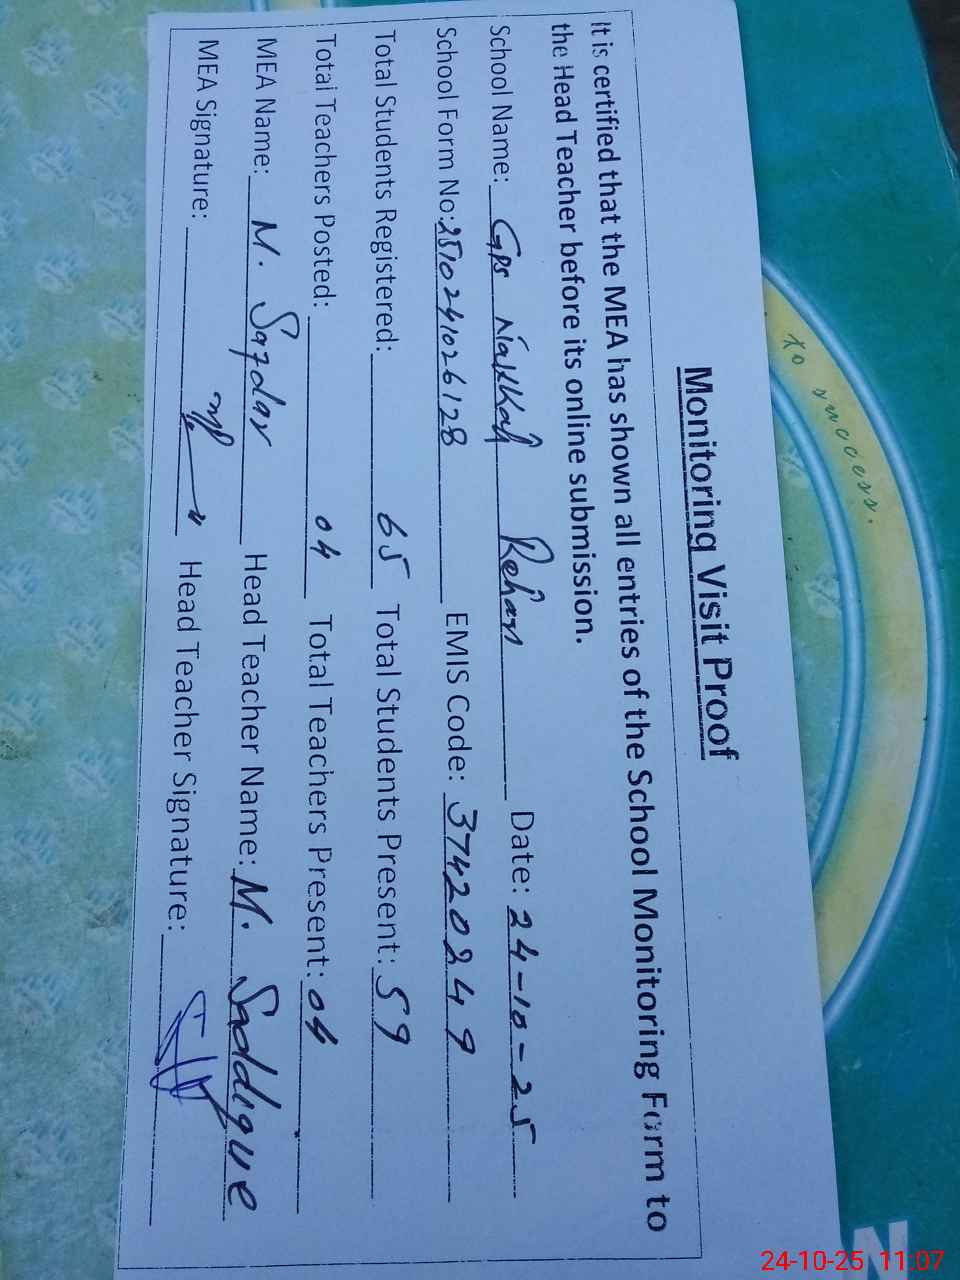 Monitoring Visit Proof
It is certified that the MEA has shown all entries of the School Monitoring Form to
the Head Teacher before its online submission.
School Name: GPS Nakkah Rehan Date: 24-10-25
School Form No: 2510241026128 EMIS Code: 37420249
Total Students Registered: 65 Total Students Present: 59
Total Teachers Posted: 04 Total Teachers Present: 04
MEA Name: M. Safdar Head Teacher Name: M. Saddique
MEA Signature: Head Teacher Signature:
to success.
N
24-10-25 11:07